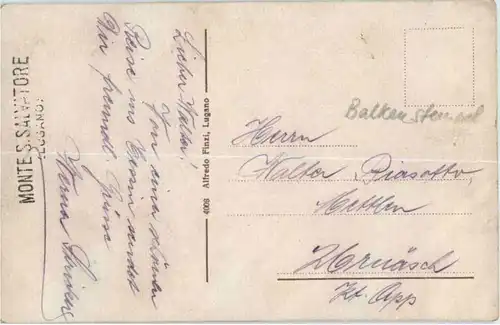 MONTE S. SALVATORE
(LUGANO)
Lieber Walter!
Von einer schönen
Reise ins Tessin sendet
Dir freundl. Grüsse
Werner
4008 Alfredo Finzi, Lugano
Balkenstempel
Herrn
Walter Biasotto,
Mettlen
Urnäsch
Kt. App